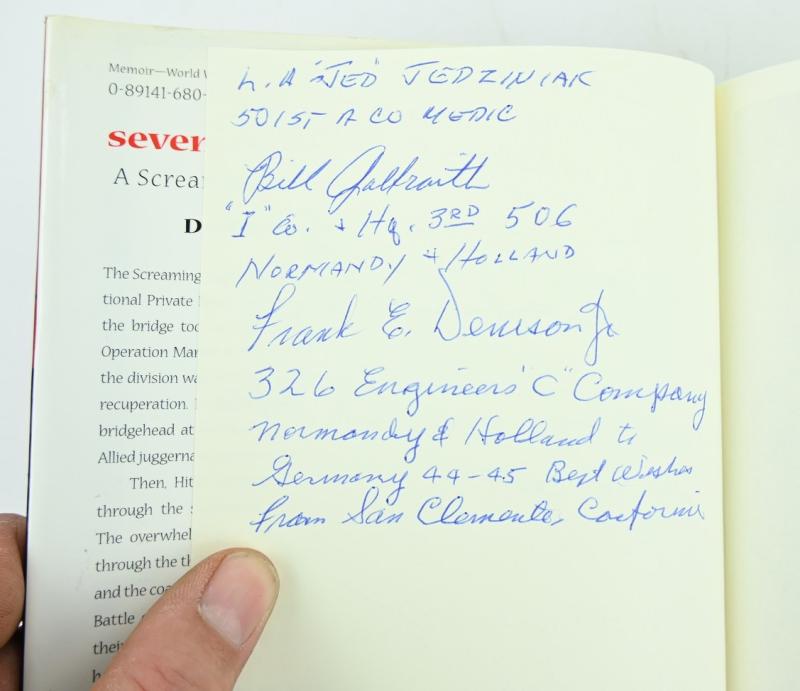 Memoir—World W
0-89141-680-
seven
A Screa
D
The Screaming
tional Private
the bridge too
Operation Mar
the division wa
recuperation.
bridgehead at
Allied juggerna
Then, Hit
through the s
The overwhel
through the th
and the coa
Battle
their
L.A "JED" JEDZINIAK
501ST A CO MEDIC
Bill Galbraith
"I" Co. & Hq. 3RD 506
NORMANDY & HOLLAND
Frank E. Denison Jr
326 Engineers "C" Company
Normandy & Holland to
Germany 44-45 Best Wishes
From San Clemente, California